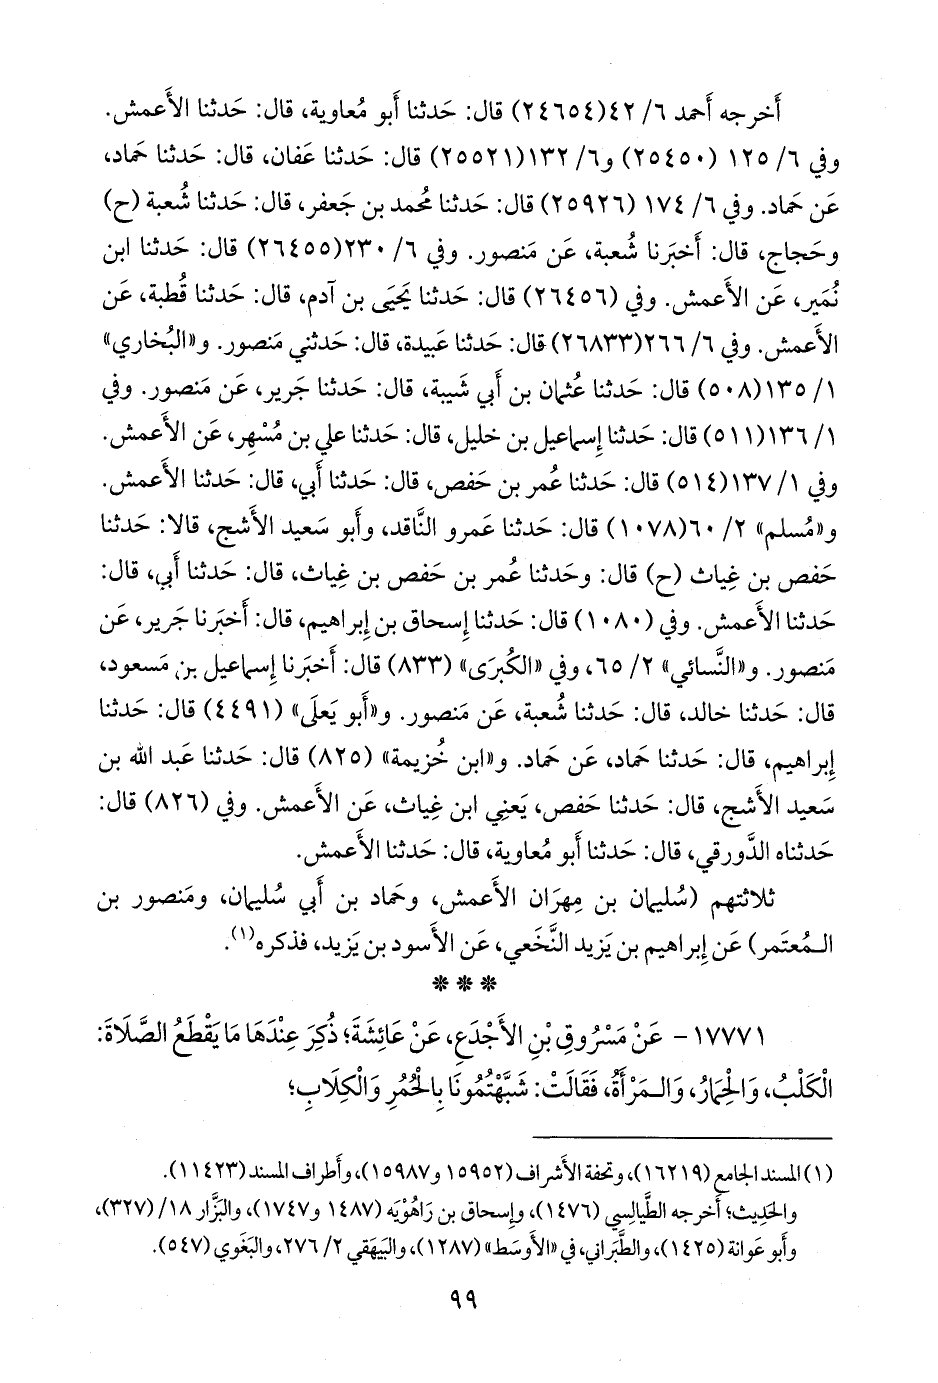 أَخرجه أَحمد ٦/ ٤٢(٢٤٦٥٤) قال: حَدثنا أَبو مُعاوية، قال: حَدثنا الأَعمش.
وفي ٦/ ١٢٥ (٢٥٤٥٠) و٦/ ١٣٢(٢٥٥٢١) قال: حَدثنا عَفان، قال: حَدثنا حَماد،
عَن حَماد. وفي ٦/ ١٧٤ (٢٥٩٢٦) قال: حَدثنا مُحمد بن جَعفر، قال: حَدثنا شُعبة (ح)
وحَجاج، قال: أَخبَرنا شُعبة، عَن مَنصور. وفي ٦/ ٢٣٠(٢٦٤٥٥) قال: حَدثنا ابن
نُمَير، عَن الأَعمش. وفي (٢٦٤٥٦) قال: حَدثنا يَحيَى بن آدم، قال: حَدثنا قُطبة، عَن
الأَعمش. وفي ٦/ ٢٦٦(٢٦٨٣٣) قال: حَدثنا عَبيدة، قال: حَدثني مَنصور. و«البُخاري»
١/ ١٣٥(٥٠٨) قال: حَدثنا عُثمان بن أَبي شَيبة، قال: حَدثنا جَرير، عَن مَنصور. وفي
١/ ١٣٦(٥١١) قال: حَدثنا إِسماعيل بن خليل، قال: حَدثنا علي بن مُسْهِر، عَن الأَعمش.
وفي ١/ ١٣٧(٥١٤) قال: حَدثنا عُمر بن حَفص، قال: حَدثنا أَبي، قال: حَدثنا الأَعمش.
و«مُسلم» ٢/ ٦٠(١٠٧٨) قال: حَدثنا عَمرو النَّاقد، وأَبو سَعيد الأَشج، قالا: حَدثنا
حَفص بن غِياث (ح) قال: وحَدثنا عُمر بن حَفص بن غِياث، قال: حَدثنا أَبي، قال:
حَدثنا الأَعمش. وفي (١٠٨٠) قال: حَدثنا إِسحاق بن إِبراهيم، قال: أَخبَرنا جَرير، عَن
مَنصور. و«النَّسائي» ٢/ ٦٥، وفي «الكُبرَى» (٨٣٣) قال: أَخبَرنا إِسماعيل بن مَسعود،
قال: حَدثنا خالد، قال: حَدثنا شُعبة، عَن مَنصور. و«أَبو يَعلَى» (٤٤٩١) قال: حَدثنا
إِبراهيم، قال: حَدثنا حَماد، عَن حَماد. و«ابن خُزيمة» (٨٢٥) قال: حَدثنا عَبد الله بن
سَعيد الأَشج، قال: حَدثنا حَفص، يَعنِي ابن غِياث، عَن الأَعمش. وفي (٨٢٦) قال:
حَدثناه الدَّورقي، قال: حَدثنا أَبو مُعاوية، قال: حَدثنا الأَعمش.
ثلاثتهم (سُليمان بن مِهرَان الأَعمش، وحَماد بن أَبي سُليمان، ومَنصور بن
الـمُعتَمر) عَن إِبراهيم بن يَزيد النَّخَعي، عَن الأَسود بن يَزيد، فذكره(١).
* * *
١٧٧٧١- عَنْ مَسْرُوقِ بْنِ الأَجْدَعِ، عَنْ عَائِشَةَ؛ ذُكِرَ عِنْدَهَا مَا يَقْطَعُ الصَّلَاةَ:
الْكَلْبُ، وَالْحِمَارُ، وَالـمَرْأَةُ، فَقَالَتْ: شَبَّهْتُمُونَا بِالْحُمُرِ وَالْكِلَابِ؛
(١) المسند الجامع (١٦٢١٩)، وتحفة الأشراف (١٥٩٥٢ و١٥٩٨٧)، وأطراف المسند (١١٤٢٣).
والحَدِيث؛ أَخرجه الطَّيالِسي (١٤٧٦)، وإِسحاق بن رَاهُوْيَه (١٤٨٧ و١٧٤٧)، والبَزَّار ١٨/ (٣٢٧)،
وأَبو عَوانة (١٤٢٥)، والطَّبَراني، في «الأَوسَط» (١٢٨٧)، والبَيهَقي ٢/ ٢٧٦، والبَغَوي (٥٤٧).
٩٩